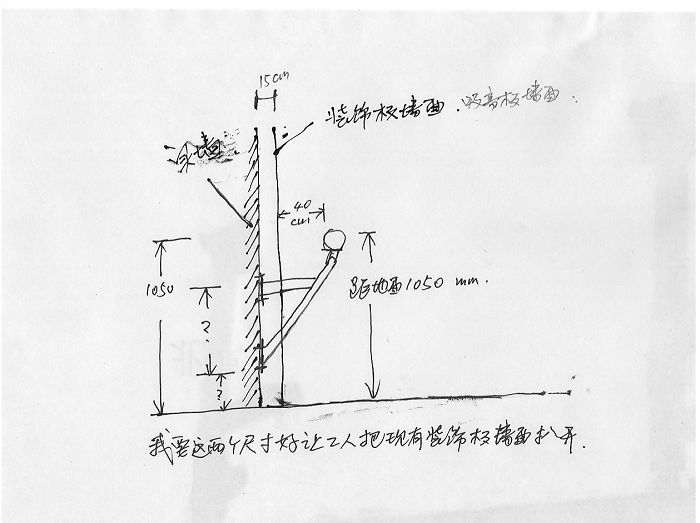 15cm
装饰板墙面.吸音板墙面.
墙
40
cm
1050
距地面1050 mm.
?
?
我要这两个尺寸好让工人把现有装饰板墙面扒开.